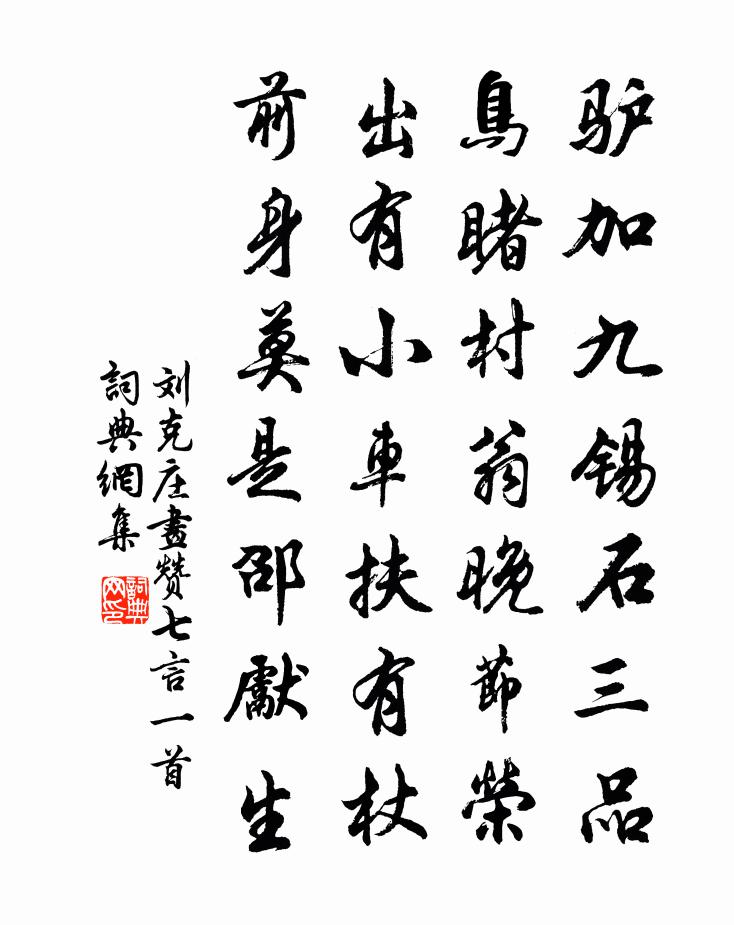 驴加九锡石三品
鳥睹村翁晚節榮
出有小車扶有杖
前身莫是邵獻生
刘克庄畫赞七言一首
詞典網集
詞典
网印